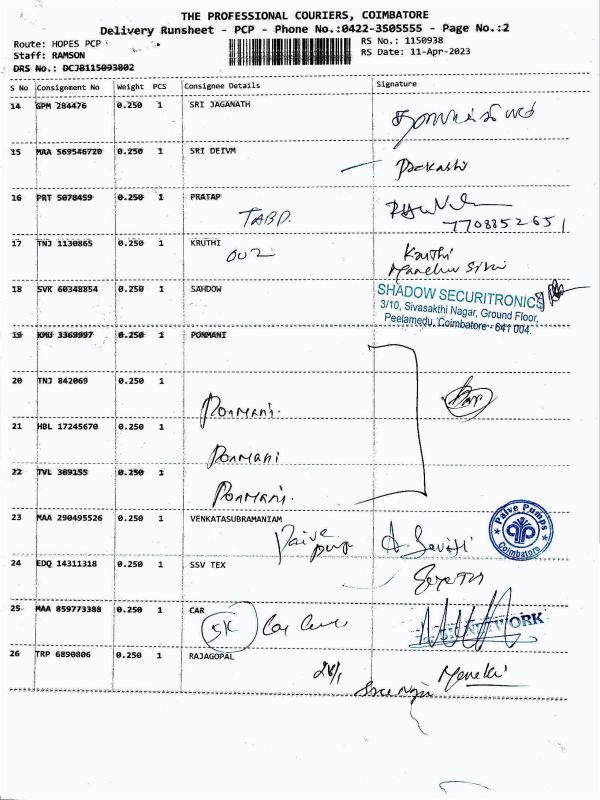 THE PROFESSIONAL COURIERS, COIMBATORE
Delivery Runsheet - PCP - Phone No.:0422-3505555 - Page No.:2
Route: HOPES PCP
RS No.: 1150938
Staff: RAMSON
RS Date: 11-Apr-2023
DRS No.: DCJB115093802
S No Consignment No Weight PCS Consignee Details Signature
14 GPM 284476 0.250 1 SRI JAGANATH
15 MAA 569546720 0.250 1 SRI DEIVM
Prakash
16 PRT 5078459 0.250 1 PRATAP
TABD.
7708852651
17 TNJ 1130865 0.250 1 KRUTHI
002
Kruthi
18 SVK 60348854 0.250 1 SAHDOW
SHADOW SECURITRONICS
3/10, Sivasakthi Nagar, Ground Floor,
Peelamedu, Coimbatore - 641 004.
19 KMU 3369997 0.250 1 PONMANI
20 TNJ 842069 0.250 1
Ponmani.
21 HBL 17245670 0.250 1
Ponmani
22 TVL 389155 0.250 1
Ponmani.
23 MAA 290495526 0.250 1 VENKATASUBRAMANIAM
Paive
pump
Paive Pumps
Coimbatore
24 EDQ 14311318 0.250 1 SSV TEX
25 MAA 859773388 0.250 1 CAR
SK Car Care
NETWORK
26 TRP 6890806 0.250 1 RAJAGOPAL